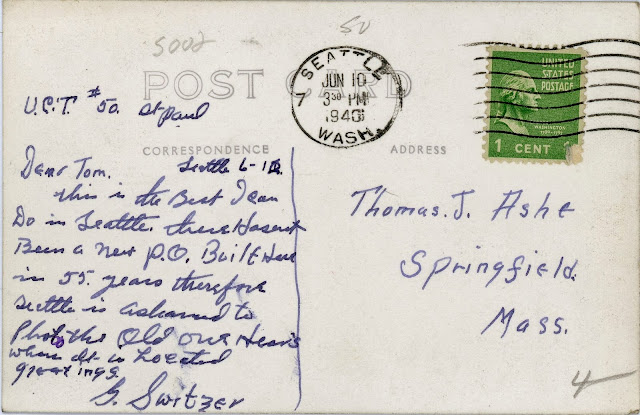 5002
50
POST CARD
SEATTLE
JUN 10
3 30 PM
1940
WASH.
7
UNITED
STATES
POSTAGE
WASHINGTON
1 CENT
U.C.T. #50. St Paul
CORRESPONDENCE
ADDRESS
Dear Tom. Seattle 6-10.
This is the Best I can
Do in Seattle. there Hasent
Been a new P.O. Built Here
in 55. years therefore
Seattle is ashamed to
Photo the Old one Hear's
where it is Located
greetings
G. Switzer
Thomas. J. Ashe
Springfield.
Mass.
4